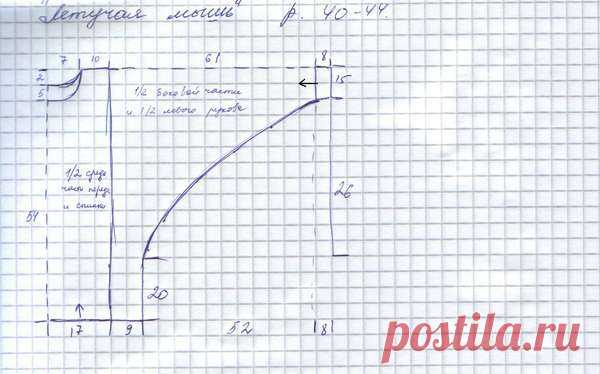 "Летучая мышь" р. 40-44.
7 10 61 8
2
5
15
1/2 боковой части
и 1/2 левого рукава
1/2 средн
части переда
и спинки
51
26
20
17 9 52 8
postila.ru